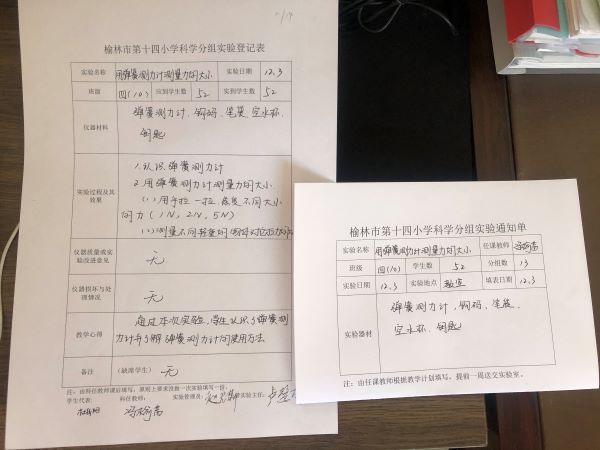 榆林市第十四小学科学分组实验登记表
实验名称 用弹簧测力计测量力的大小 实验日期 12.3
班级 四(10) 应到学生数 52 实到学生数 52
仪器材料 弹簧测力计、钩码、笔袋、空水杯、
钥匙
实验过程及其
效果
1.认识弹簧测力计
2.用弹簧测力计测量力的大小
(1)用手拉一拉,感受不同大小
的力(1N,2N,5N)
(2)测量不同
仪器质量或实
验改进意见
无
仪器损坏与处
理情况
无
教学心得
通过本次实验,学生认识了弹簧测
力计并了解弹簧测力计的使用方法
备注 (缺席学生) 无
注:由科任教师课后填写,原则上要求没做一次实验填写一份。
学生代表: 科任教师: 实验管理员: 实验主任:
榆林市第十四小学科学分组实验通知单
实验名称 用弹簧测力计测量力的大小 任课教师
班级 四(10) 学生数 52 分组数 13
实验日期 12.3 实验地点 教室 填表日期 12.3
实验器材
弹簧测力计,钩码、笔袋、
空水杯、钥匙
注:由任课教师根据教学计划填写,提前一周送交实验室。